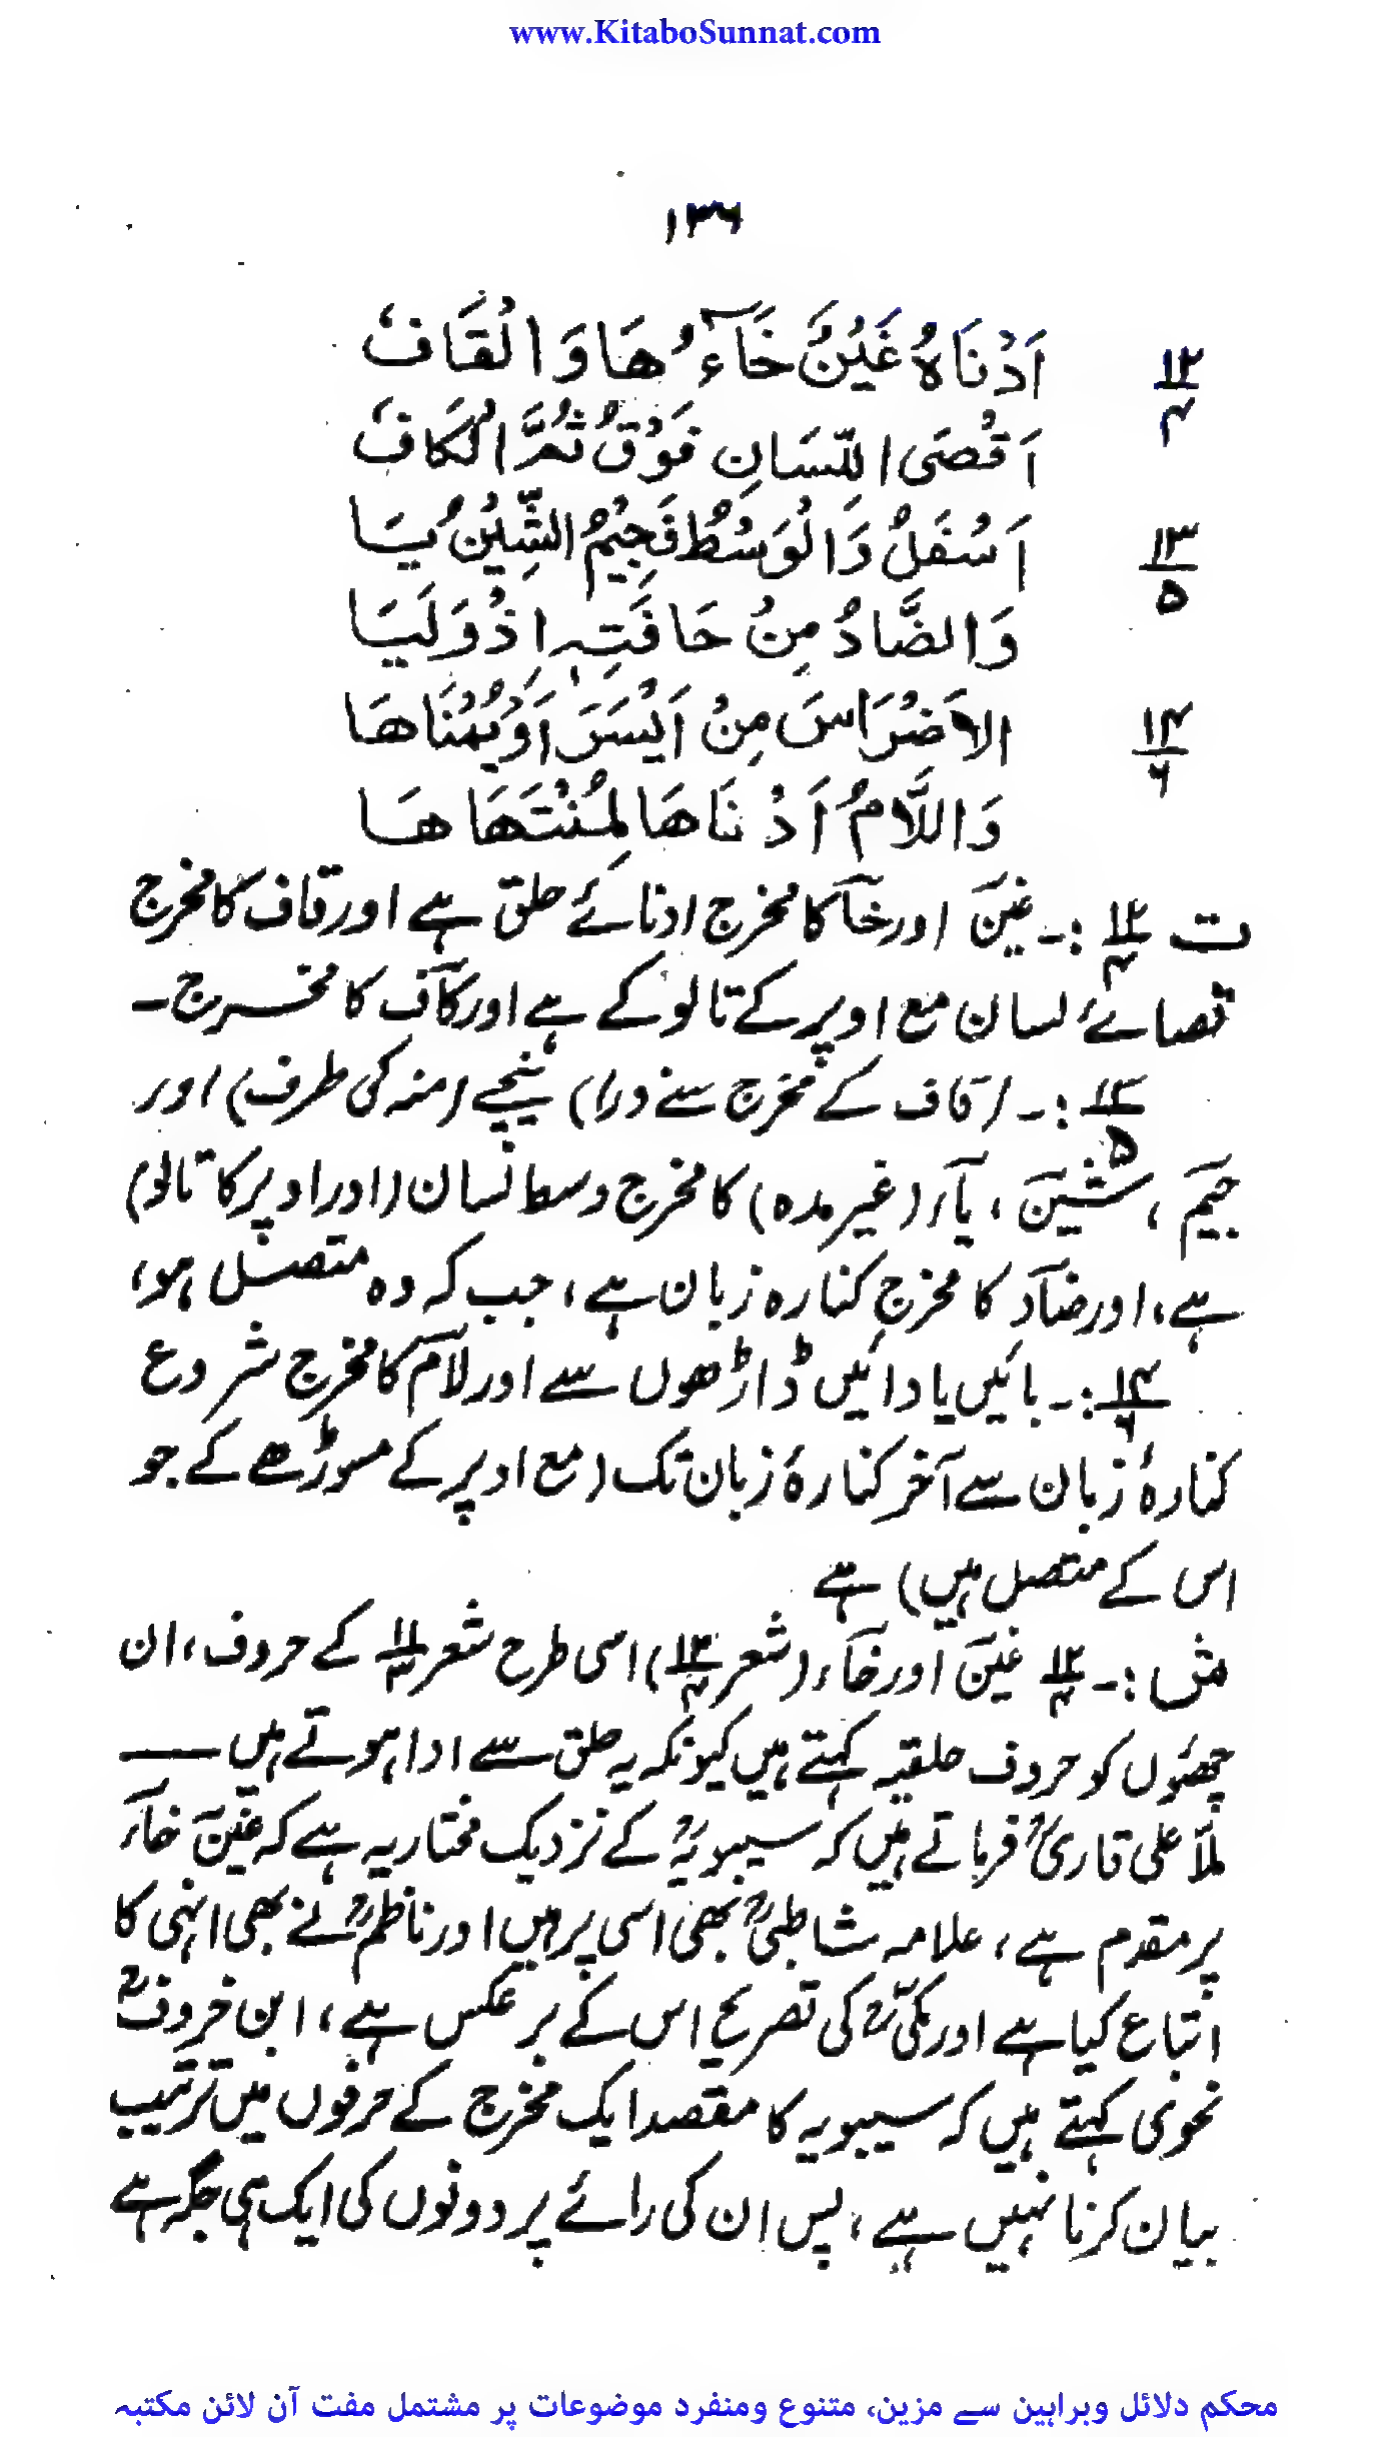 www.KitaboSunnat.com
۱۳۶
۱۲/۴ اَدْنَاهُ غَيْنٌ خَآءُ هَا وَالْقَافُ
اَقْصَى اللِّسَانِ فَوْقُ ثُمَّ الْكَافُ
۱۳/۵ اَسْفَلُ وَالْوَسْطُ فَجِيْمُ الشِّيْنُ يَا
وَالضَّادُ مِنْ حَافَتِهٖ اِذْ وَلِيَا
۱۴/۶ الاَضْرَاسَ مِنْ اَيْسَرَ اَوْيُمْنَاهَا
وَاللَّامُ اَدْنَاهَا لِمُنْتَهَاهَا
ت ۱۲/۴ :۔ غینؔ اور خآ کا مخرج ادنائے حلق ہے اور قاف کا مخرج
قصائے لسان مع اوپر کے تالو کے ہے اور کاف کا مخرج ۔
۱۳/۵ :۔ (قاف کے مخرج سے ذرا) نیچے (منہ کی طرف) اور
جیم ، شین ، یآء (غیر مدہ) کا مخرج وسط لسان (اور اوپر کا تالو)
ہے، اور ضاد کا مخرج کنارہ زبان ہے، جب کہ وہ متصل ہو،
۱۴/۶ :۔ بائیں یا دائیں ڈاڑھوں سے اور لام کا مخرج شروع
کنارۂ زبان سے آخر کنارۂ زبان تک (مع اوپر کے مسوڑھے کے جو
اس کے متصل ہیں) ہے
ش :۔ ۱۲/۴ غین اور خآء (شعر ۱۲/۴) اسی طرح شعر ۱۱/۳ کے حروف، ان
چھئوں کو حروف حلقیہ کہتے ہیں کیونکہ یہ حلق سے ادا ہوتے ہیں ــــ
ملّا علی قاریؒ فرماتے ہیں کہ سیبویہؒ کے نزدیک مختار یہ ہے کہ غین خاء
پر مقدم ہے، علامہ شاطبیؒ بھی اسی پر ہیں اور ناظمؒ نے بھی انہی کا
اتباع کیا ہے اور مکّیؒ کی تصریح اس کے برعکس ہے، ابن خروفؒ
نحوی کہتے ہیں کہ سیبویہ کا مقصد ایک مخرج کے حرفوں میں ترتیب
بیان کرنا نہیں ہے، پس ان کی رائے پر دونوں کی ایک ہی جگہ ہے
محکم دلائل وبراہین سے مزین، متنوع ومنفرد موضوعات پر مشتمل مفت آن لائن مکتبہ